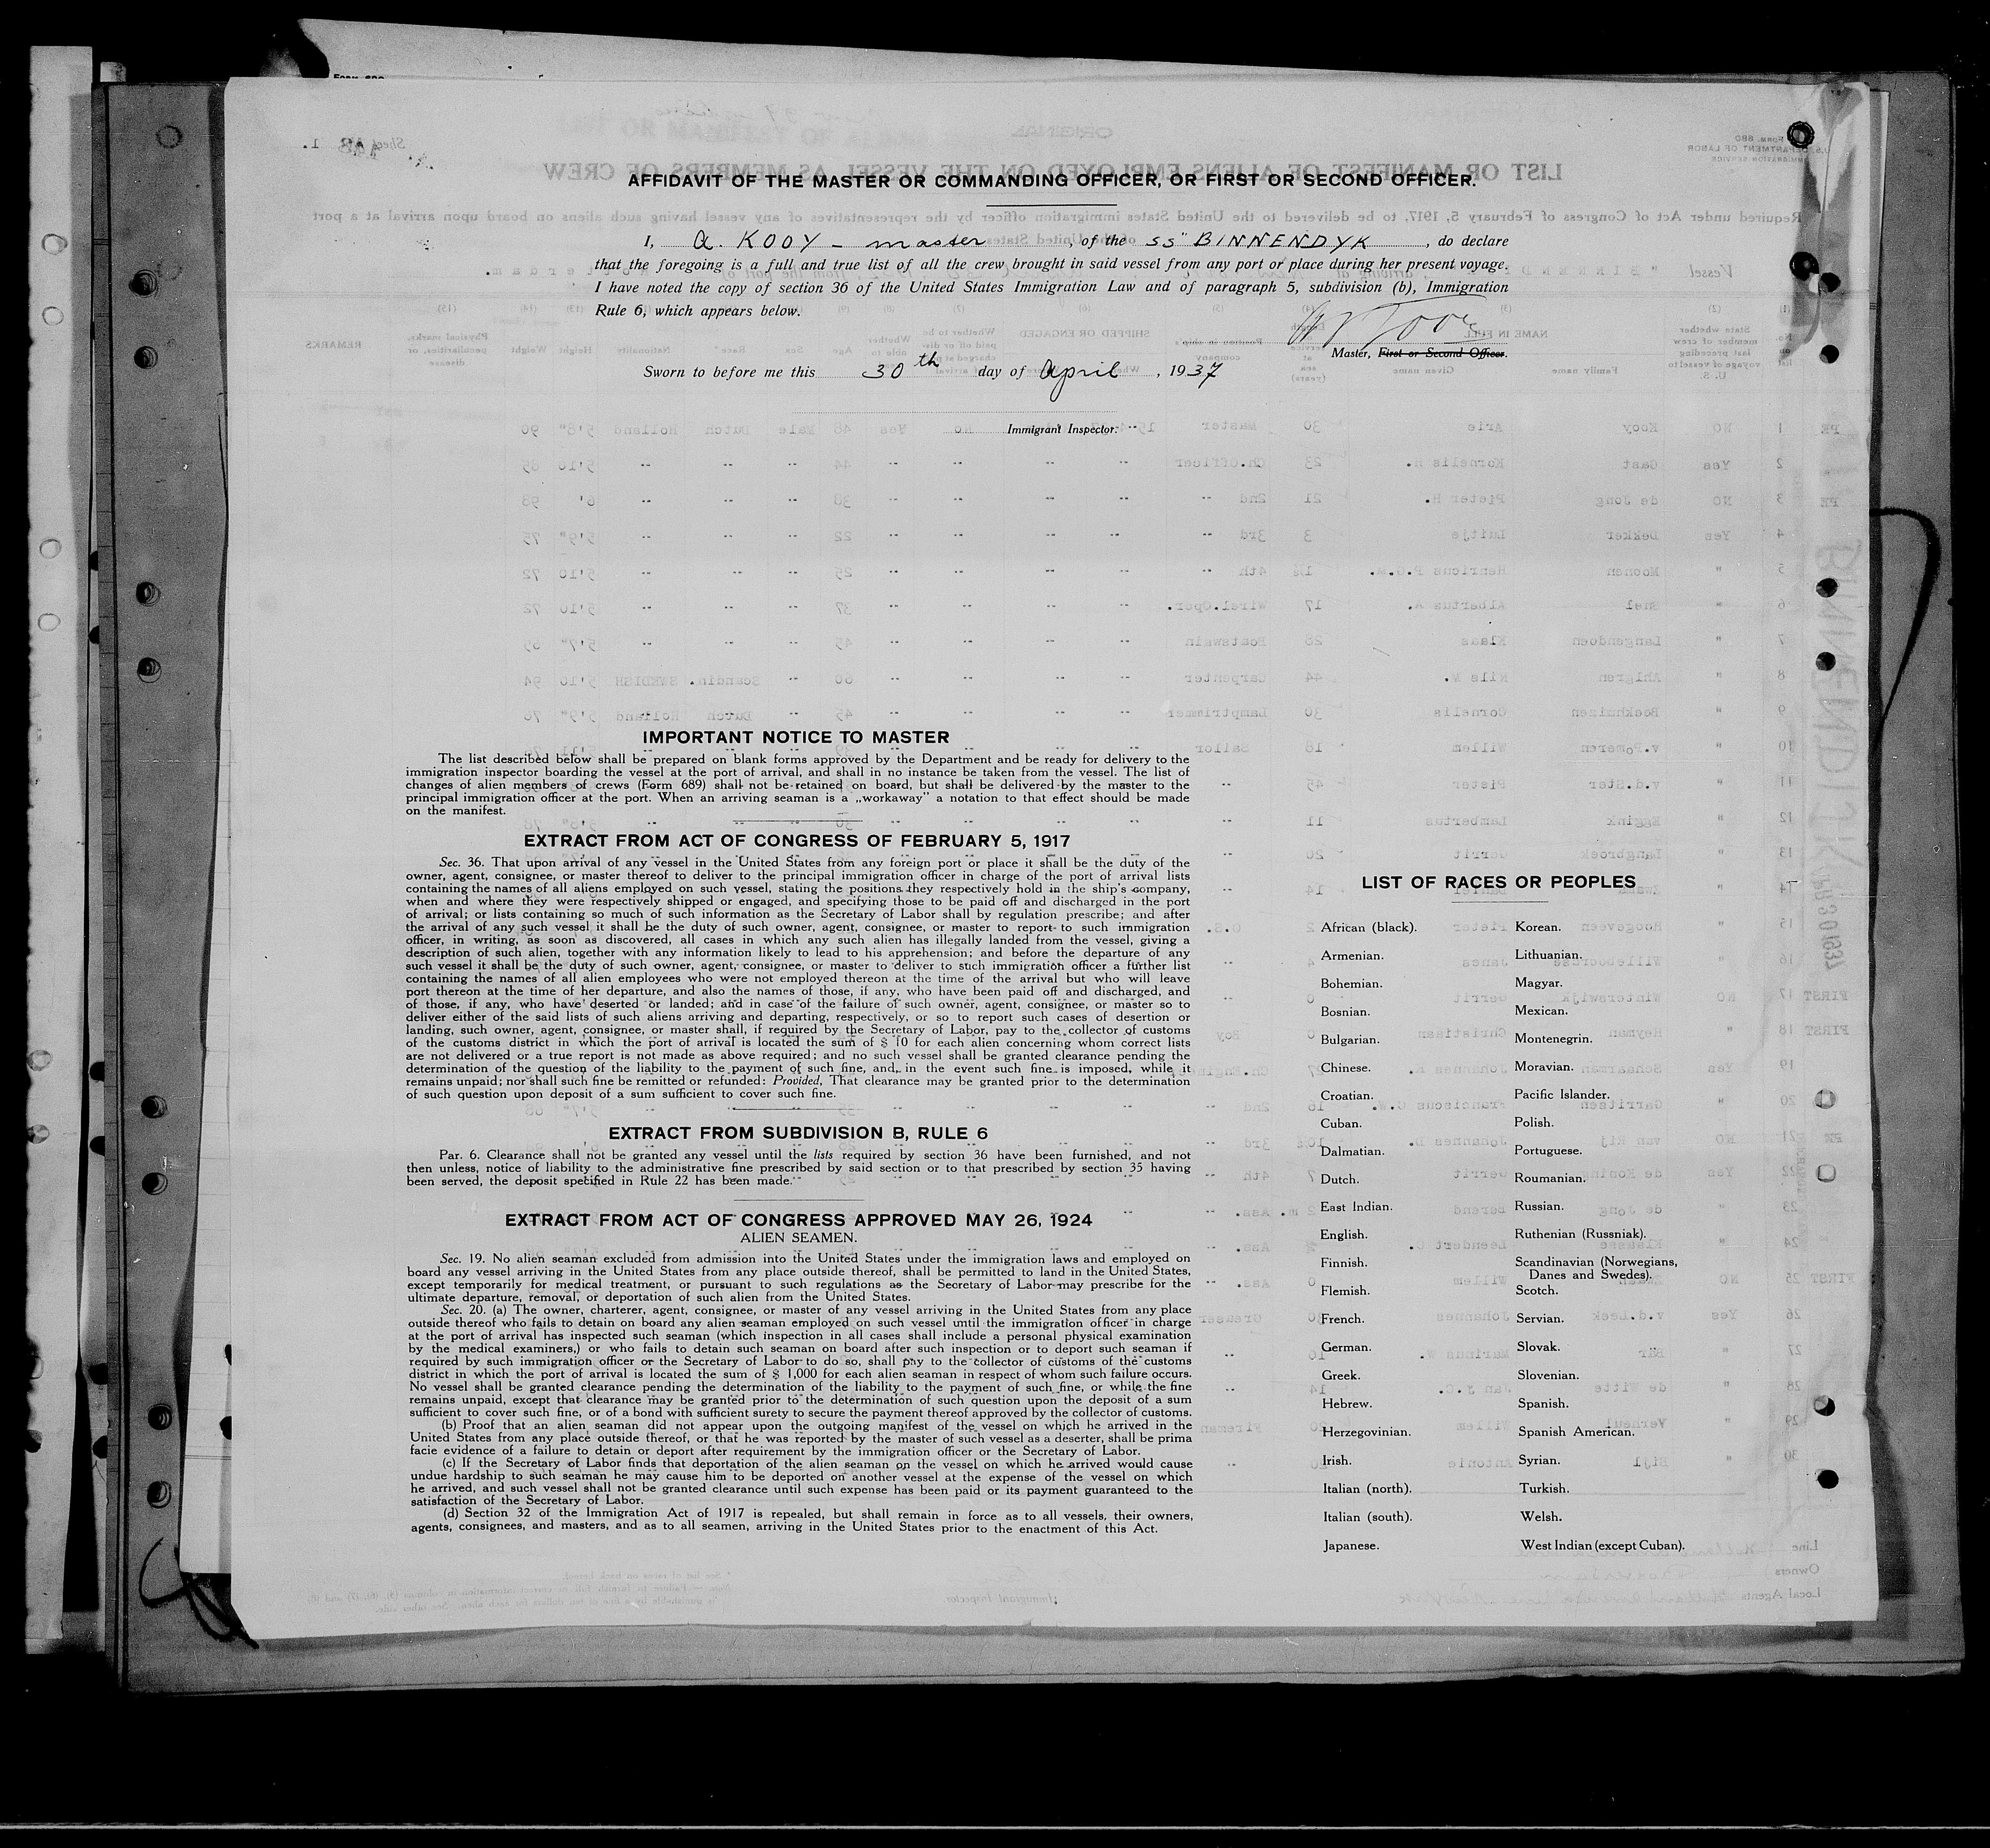 AFFIDAVIT OF THE MASTER OR COMMANDING OFFICER, OR FIRST OR SECOND OFFICER.
I, A. KOOY - master, of the SS "BINNENDYK, do declare
that the foregoing is a full and true list of all the crew brought in said vessel from any port or place during her present voyage.
I have noted the copy of section 36 of the United States Immigration Law and of paragraph 5, subdivision (b), Immigration
Rule 6, which appears below.
Master, First or Second Officer.
Sworn to before me this 30th day of April, 1937
Immigrant Inspector.
IMPORTANT NOTICE TO MASTER
The list described below shall be prepared on blank forms approved by the Department and be ready for delivery to the
immigration inspector boarding the vessel at the port of arrival, and shall in no instance be taken from the vessel. The list of
changes of alien members of crews (Form 689) shall not be retained on board, but shall be delivered by the master to the
principal immigration officer at the port. When an arriving seaman is a „workaway" a notation to that effect should be made
on the manifest.
EXTRACT FROM ACT OF CONGRESS OF FEBRUARY 5, 1917
Sec. 36. That upon arrival of any vessel in the United States from any foreign port or place it shall be the duty of the
owner, agent, consignee, or master thereof to deliver to the principal immigration officer in charge of the port of arrival lists
containing the names of all aliens employed on such vessel, stating the positions they respectively hold in the ship's company,
when and where they were respectively shipped or engaged, and specifying those to be paid off and discharged in the port
of arrival; or lists containing so much of such information as the Secretary of Labor shall by regulation prescribe; and after
the arrival of any such vessel it shall be the duty of such owner, agent, consignee, or master to report to such immigration
officer, in writing, as soon as discovered, all cases in which any such alien has illegally landed from the vessel, giving a
description of such alien, together with any information likely to lead to his apprehension; and before the departure of any
such vessel it shall be the duty of such owner, agent, consignee, or master to deliver to such immigration officer a further list
containing the names of all alien employees who were not employed thereon at the time of the arrival but who will leave
port thereon at the time of her departure, and also the names of those, if any, who have been paid off and discharged, and
of those, if any, who have deserted or landed; and in case of the failure of such owner, agent, consignee, or master so to
deliver either of the said lists of such aliens arriving and departing, respectively, or so to report such cases of desertion or
landing, such owner, agent, consignee, or master shall, if required by the Secretary of Labor, pay to the collector of customs
of the customs district in which the port of arrival is located the sum of $ 10 for each alien concerning whom correct lists
are not delivered or a true report is not made as above required; and no such vessel shall be granted clearance pending the
determination of the question of the liability to the payment of such fine, and, in the event such fine is imposed, while it
remains unpaid; nor shall such fine be remitted or refunded: Provided, That clearance may be granted prior to the determination
of such question upon deposit of a sum sufficient to cover such fine.
EXTRACT FROM SUBDIVISION B, RULE 6
Par. 6. Clearance shall not be granted any vessel until the lists required by section 36 have been furnished, and not
then unless, notice of liability to the administrative fine prescribed by said section or to that prescribed by section 35 having
been served, the deposit specified in Rule 22 has been made.
EXTRACT FROM ACT OF CONGRESS APPROVED MAY 26, 1924
ALIEN SEAMEN.
Sec. 19. No alien seaman excluded from admission into the United States under the immigration laws and employed on
board any vessel arriving in the United States from any place outside thereof, shall be permitted to land in the United States,
except temporarily for medical treatment, or pursuant to such regulations as the Secretary of Labor may prescribe for the
ultimate departure, removal, or deportation of such alien from the United States.
Sec. 20. (a) The owner, charterer, agent, consignee, or master of any vessel arriving in the United States from any place
outside thereof who fails to detain on board any alien seaman employed on such vessel until the immigration officer in charge
at the port of arrival has inspected such seaman (which inspection in all cases shall include a personal physical examination
by the medical examiners,) or who fails to detain such seaman on board after such inspection or to deport such seaman if
required by such immigration officer or the Secretary of Labor to do so, shall pay to the collector of customs of the customs
district in which the port of arrival is located the sum of $ 1,000 for each alien seaman in respect of whom such failure occurs.
No vessel shall be granted clearance pending the determination of the liability to the payment of such fine, or while the fine
remains unpaid, except that clearance may be granted prior to the determination of such question upon the deposit of a sum
sufficient to cover such fine, or of a bond with sufficient surety to secure the payment thereof approved by the collector of customs.
(b) Proof that an alien seaman did not appear upon the outgoing manifest of the vessel on which he arrived in the
United States from any place outside thereof, or that he was reported by the master of such vessel as a deserter, shall be prima
facie evidence of a failure to detain or deport after requirement by the immigration officer or the Secretary of Labor.
(c) If the Secretary of Labor finds that deportation of the alien seaman on the vessel on which he arrived would cause
undue hardship to such seaman he may cause him to be deported on another vessel at the expense of the vessel on which
he arrived, and such vessel shall not be granted clearance until such expense has been paid or its payment guaranteed to the
satisfaction of the Secretary of Labor.
(d) Section 32 of the Immigration Act of 1917 is repealed, but shall remain in force as to all vessels, their owners,
agents, consignees, and masters, and as to all seamen, arriving in the United States prior to the enactment of this Act.
LIST OF RACES OR PEOPLES
African (black).
Armenian.
Bohemian.
Bosnian.
Bulgarian.
Chinese.
Croatian.
Cuban.
Dalmatian.
Dutch.
East Indian.
English.
Finnish.
Flemish.
French.
German.
Greek.
Hebrew.
Herzegovinian.
Irish.
Italian (north).
Italian (south).
Japanese.
Korean.
Lithuanian.
Magyar.
Mexican.
Montenegrin.
Moravian.
Pacific Islander.
Polish.
Portuguese.
Roumanian.
Russian.
Ruthenian (Russniak).
Scandinavian (Norwegians,
Danes and Swedes).
Scotch.
Servian.
Slovak.
Slovenian.
Spanish.
Spanish American.
Syrian.
Turkish.
Welsh.
West Indian (except Cuban).